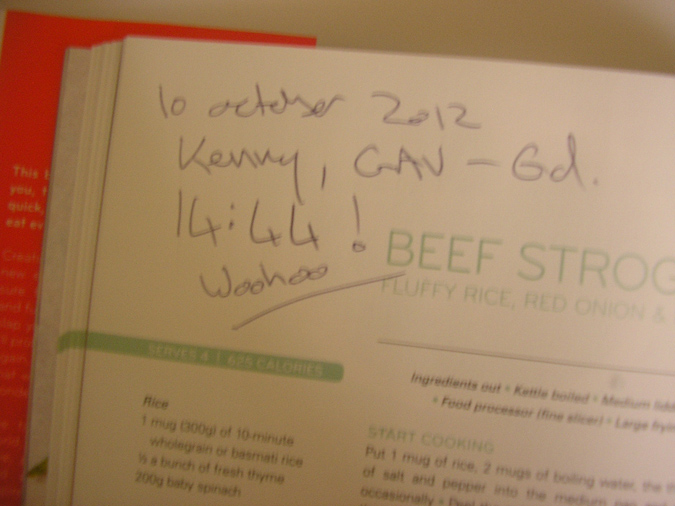 10 october 2012
Kenny, GAV - Gd.
14:44!
Woohoo
BEEF STROG
FLUFFY RICE, RED ONION &
SERVES 4 | 625 CALORIES
Rice
1 mug (300g) of 10-minute
wholegrain or basmati rice
½ a bunch of fresh thyme
200g baby spinach
Ingredients out • Kettle boiled • Medium lidd
• Food processor (fine slicer) • Large fryin
START COOKING
Put 1 mug of rice, 2 mugs of boiling water, the th
of salt and pepper into the medium pan
occasionally •
This
you,
quick,
eat ev